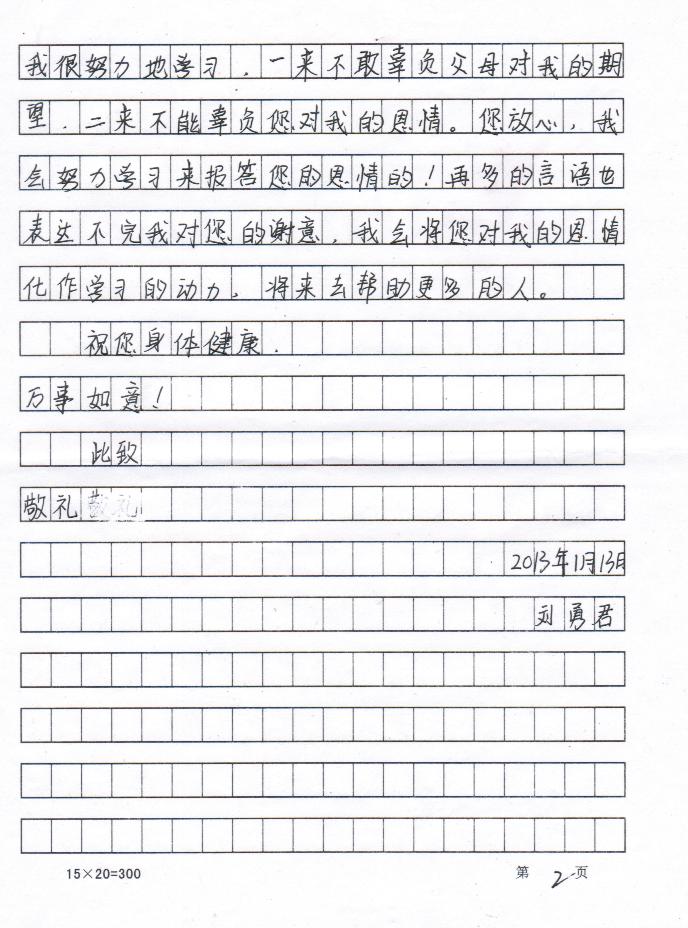 我很努力地学习，一来不敢辜负父母对我的期
望，二来不能辜负您对我的恩情。您放心，我
会努力学习来报答您的恩情的！再多的言语也
表达不完我对您的谢意，我会将您对我的恩情
化作学习的动力，将来去帮助更多的人。
祝您身体健康．
万事如意！
此致
敬礼
2013年1月13日
刘勇君
15×20=300 第2页